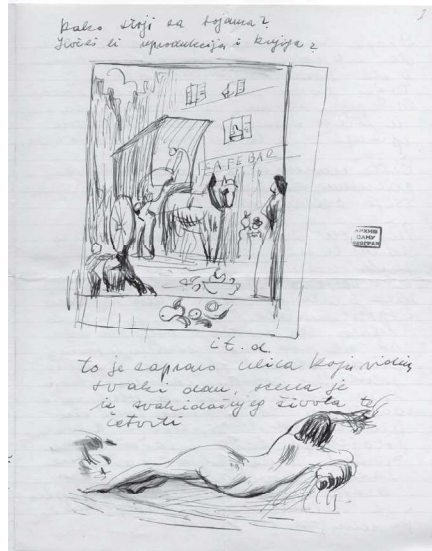 kako stoji sa bojama?
reprodukcija i knjiga?
CAFE BAR
АРХИВ
САНУ
БЕОГРАД
it.d.
to je zapravo ulica koju vidiš
svaki dan, scena je
iz svakidašnjeg života te
četvrti